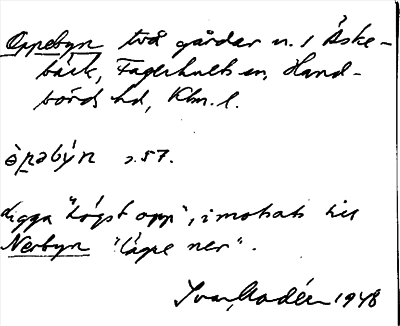 Oppebyn två gårdar n. 1 Äske-
bäck, Fagerhults sn, Hand-
börds hd, Klm. l.
òpəby̆n s. 57.
Ligga "högst opp", i motsats till
Nerbyn "lägre ner".
Ivar Modéer 1948